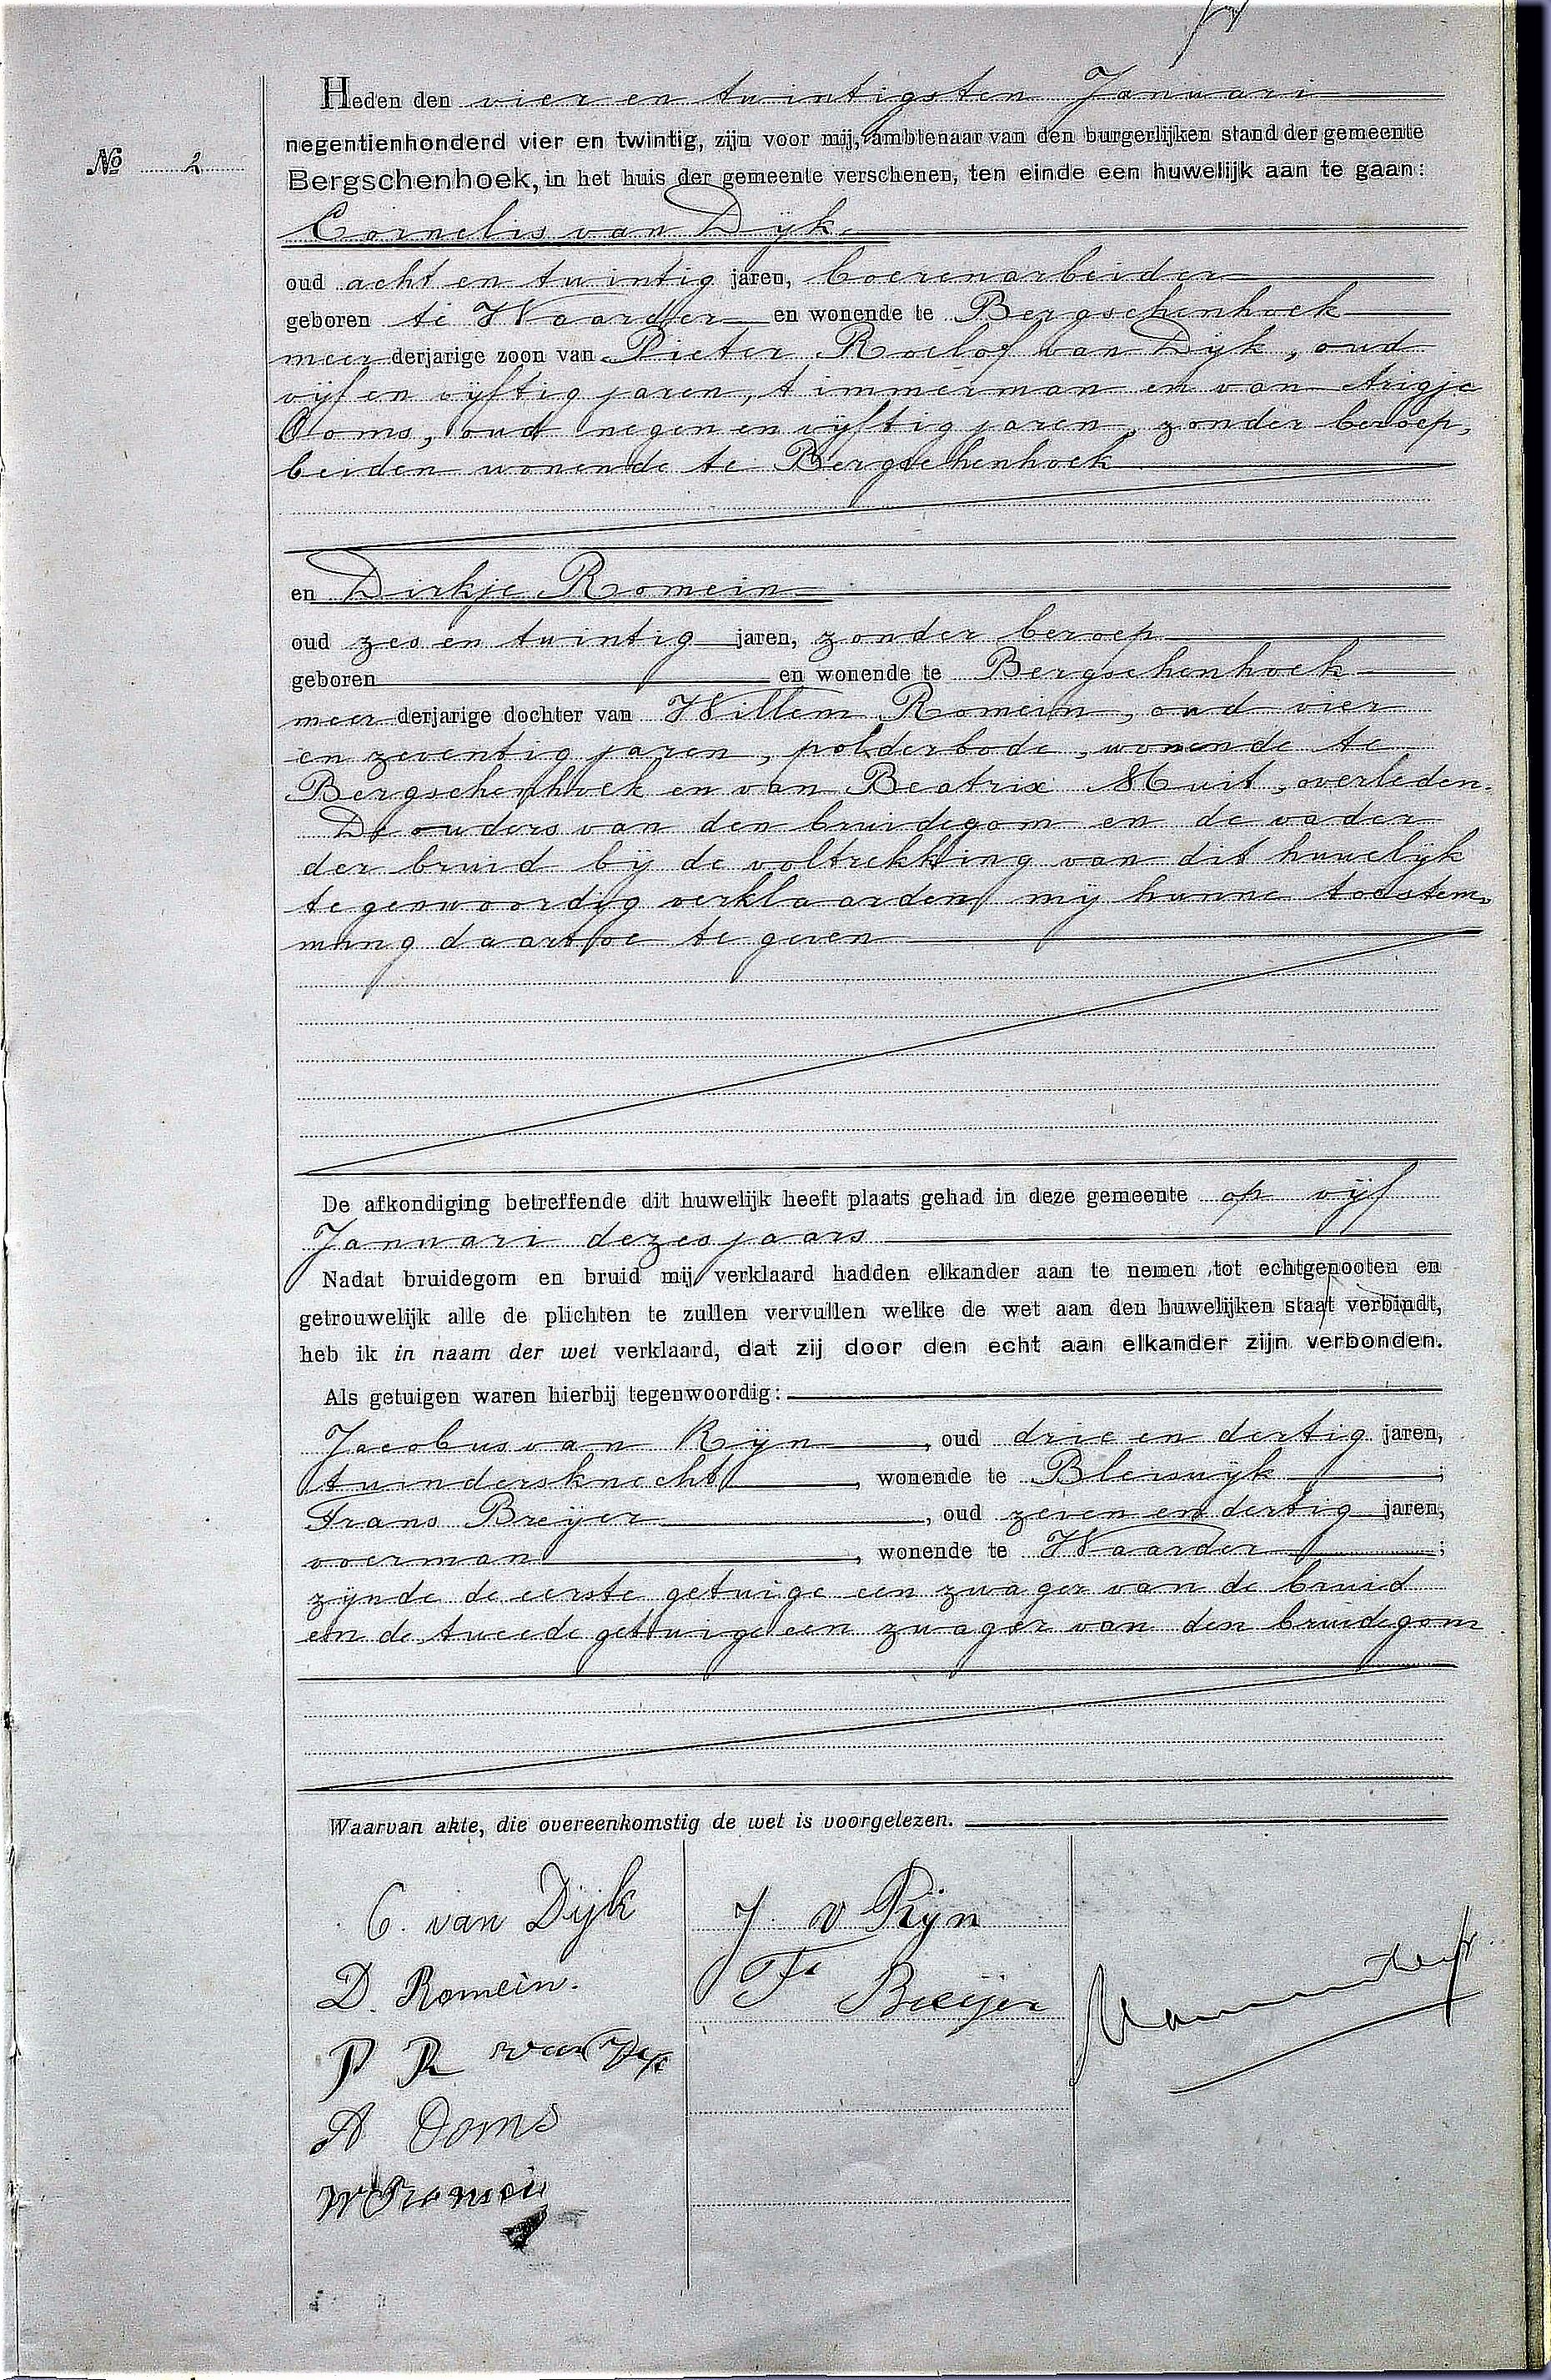 Heden den vier en twintigsten Januari
negentienhonderd vier en twintig, zijn voor mij, ambtenaar van den burgerlijken stand der gemeente
Nº 2
Bergschenhoek, in het huis der gemeente verschenen, ten einde een huwelijk aan te gaan:
Cornelis van Dijk,
oud acht en twintig jaren, boerenarbeider
geboren te Waarder en wonende te Bergschenhoek
meerderjarige zoon van Pieter Roelof van Dijk, oud
vijf en vijftig jaren, timmerman en van Arigje
Ooms, oud negen en vijftig jaren, zonder beroep,
beiden wonende te Bergschenhoek
en Dirkje Romein
oud zes en twintig jaren, zonder beroep
geboren en wonende te Bergschenhoek
meerderjarige dochter van Willem Romein, oud vier
en zeventig jaren, polderbode, wonende te
Bergschenhoek en van Beatrix Muit, overleden.
De ouders van den bruidegom en de vader
der bruid bij de voltrekking van dit huwelijk
tegenwoordig verklaarden mij hunne toestem-
ming daartoe te geven
De afkondiging betreffende dit huwelijk heeft plaats gehad in deze gemeente op vijf
Januari dezes jaars
Nadat bruidegom en bruid mij verklaard hadden elkander aan te nemen tot echtgenooten en
getrouwelijk alle de plichten te zullen vervullen welke de wet aan den huwelijken staat verbindt,
heb ik in naam der wet verklaard, dat zij door den echt aan elkander zijn verbonden.
Als getuigen waren hierbij tegenwoordig:
Jacobus van Rijn, oud drie en dertig jaren,
tuindersknecht, wonende te Bleiswijk;
Frans Breijer, oud zeven en dertig jaren,
voerman, wonende te Waarder;
zijnde de eerste getuige een zwager van de bruid
en de tweede getuige een zwager van den bruidegom
Waarvan akte, die overeenkomstig de wet is voorgelezen.
C. van Dijk
J v Rijn
D. Romein.
F Breijer
P R van Dijk
A Ooms
W Romein